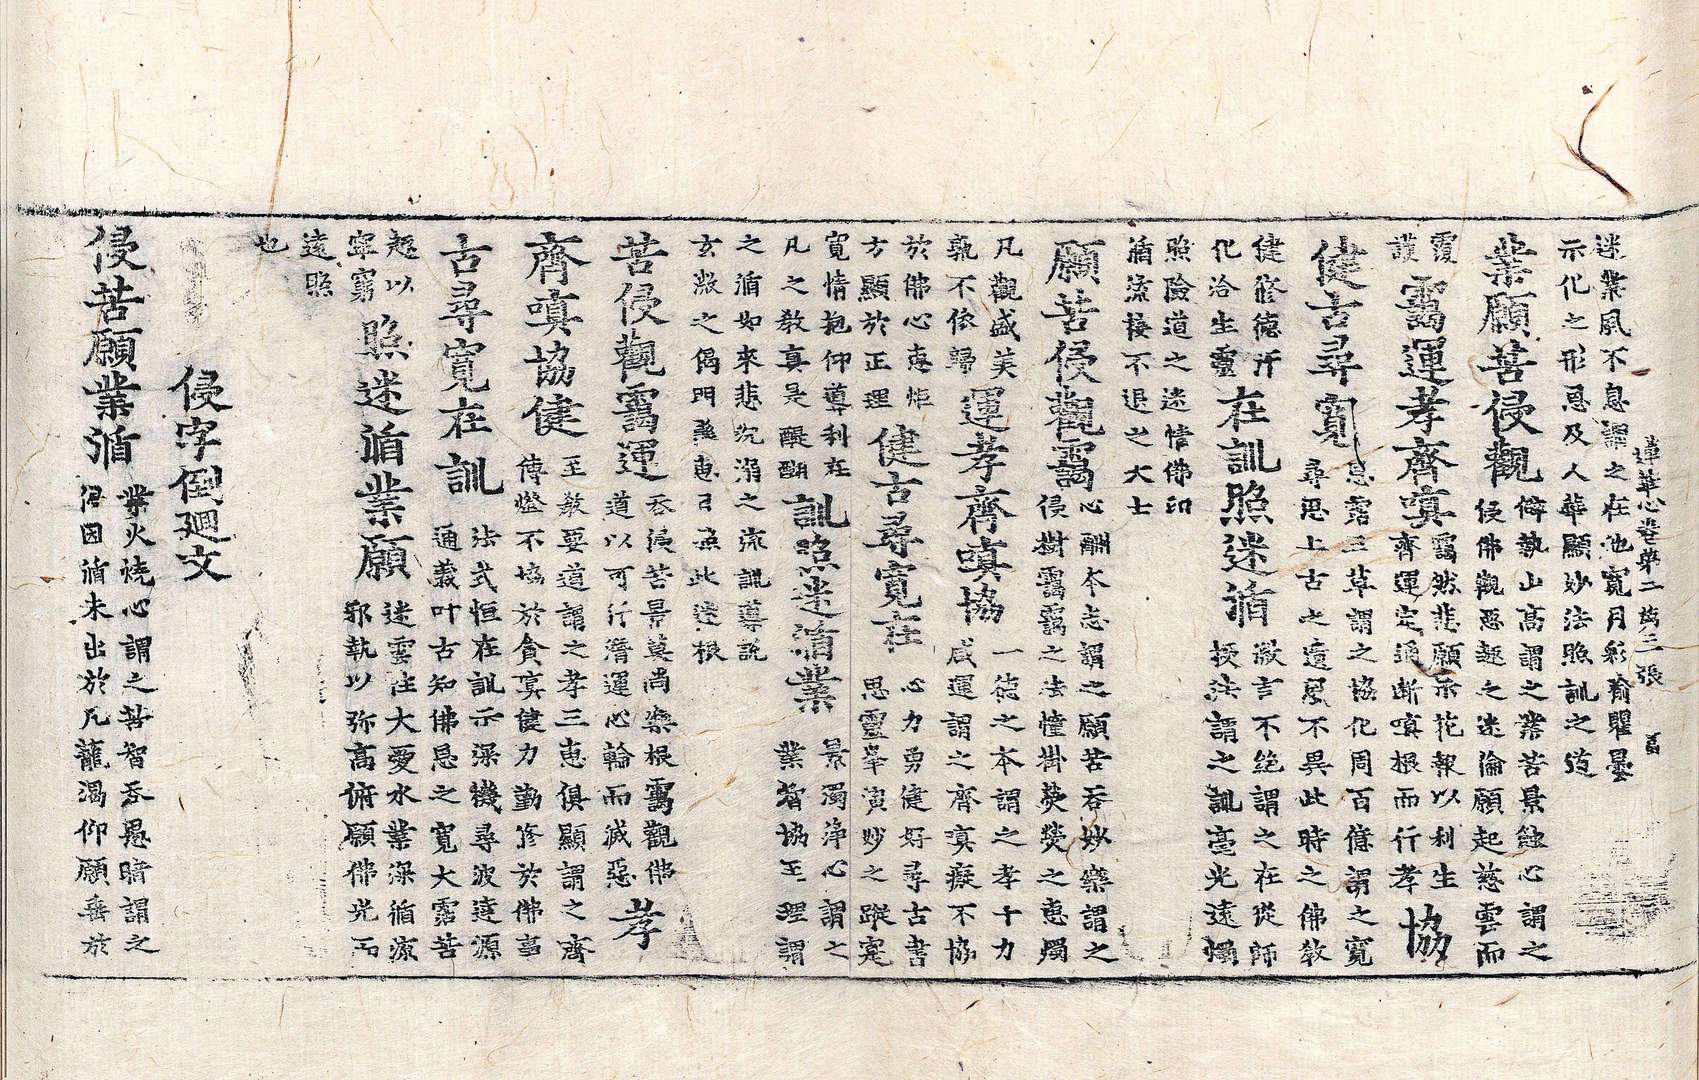 迷業風不息謂之在池寬月彩踰瞿曇
示化之形恩及人華顯妙法照訓之道
蓮華心卷第二 第三張
業願苦侵觀
僻執山高謂之業苦景蝕心謂之
侵佛觀惡趣之迷淪願起慈雲而
覆
護
靄運孝齊嗔
靄然悲願示花報以利生
齊運定通斷嗔根而行孝
協
健古尋寬
恩霑三草謂之協化周百億謂之寬
尋思上古之遺風不異此時之佛教
健修德行
化洽生靈
在訓照迷循
微言不絕謂之在從師
揀法謂之訓毫光遠燭
照險道之迷情佛印
循流接不退之大士
願苦侵觀靄
心酬本志謂之願苦吞妙藥謂之
侵樹靄靄之法幢掛熒熒之惠燭
凡觀盛美
孰不依歸
運孝齊嗔協
一徳之本謂之孝十力
咸運謂之齊嗔癡不協
於佛心惠炬
方顯於正理
健古尋寬在
心力勇健好尋古書
思靈峯演妙之蹤寔
寬情抱仰尊利在
凡之教真是醍醐
訓照迷循業
景濁淨心謂之
業智協至理謂
之循如來悲沉溺之流訓導説
玄微之偈門燕惠日燕此迷根
苦侵觀靄運
吞滾苦景莫尚藥根靄觀佛
道以可行潛運心輪而滅惡
孝
齊嗔協健
至教要道謂之孝三惠俱顯謂之齊
傳燈不協於貪嗔健力勤修於佛事
古尋寬在訓
法式恒在訓示深機尋波達源
通義叶古知佛恩之寬大霑苦
趣以
寧窮
照迷循業願
迷雲注大愛水業深循流
邪執以弥高俯願佛光而
遠照
也
侵字倒廻文
侵苦願業循
業火燒心謂之苦智吞愚暗謂之
侵因循未出於凡籠渴仰願垂於